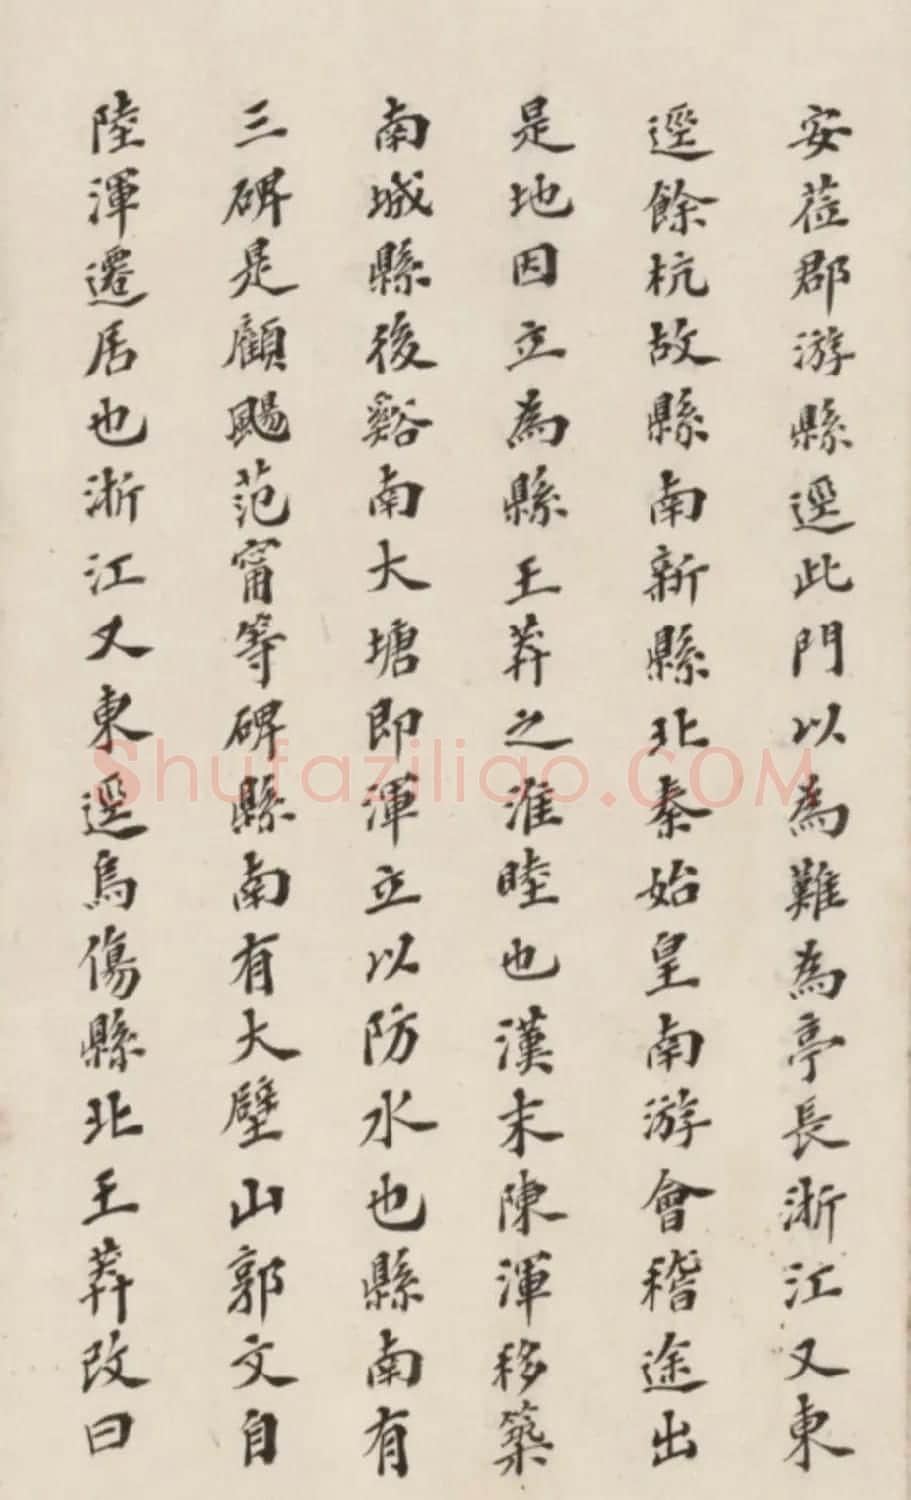 安蒞郡游縣逕此門以為難為亭長浙江又東
逕餘杭故縣南新縣北秦始皇南游會稽途出
是地因立為縣王莽之淮睦也漢末陳渾移築
南城縣後谿南大塘即渾立以防水也縣南有
三碑是顧颺范甯等碑縣南有大壁山郭文自
陸渾遷居也浙江又東逕烏傷縣北王莽改曰
Shufaziliao.COM